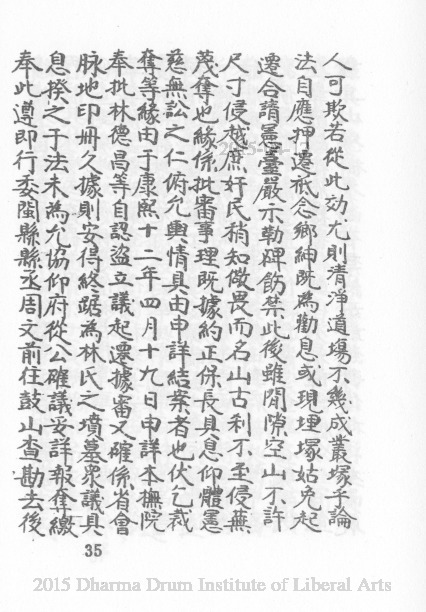 人可欺若從此効尤則清淨道場不幾成叢塚乎論
法自應押遷祇念鄉紳既為勸息或現埋塚姑免起
遷合請憲臺嚴示勒碑飭禁此後雖閒隙空山不許
尺寸侵越庶奸民稍知儆畏而名山古刹不至侵蕪
茂奪也緣係批審事理既據約正保長具息仰體憲
慈無訟之仁俯允輿情具由申詳結案者也伏乞裁
奪等緣由于康熙十二年四月十九日申詳本撫院
奉批林德昌等自認盜立議起遷據審又確係省會
脉地印冊久據則安得終踞為林氏之墳墓衆議具
息揆之于法未為允協仰府從公確議妥詳報奪繳
奉此遵即行委閩縣縣丞周文前往鼓山查勘去後
35
2015 Dharma Drum Institute of Liberal Arts